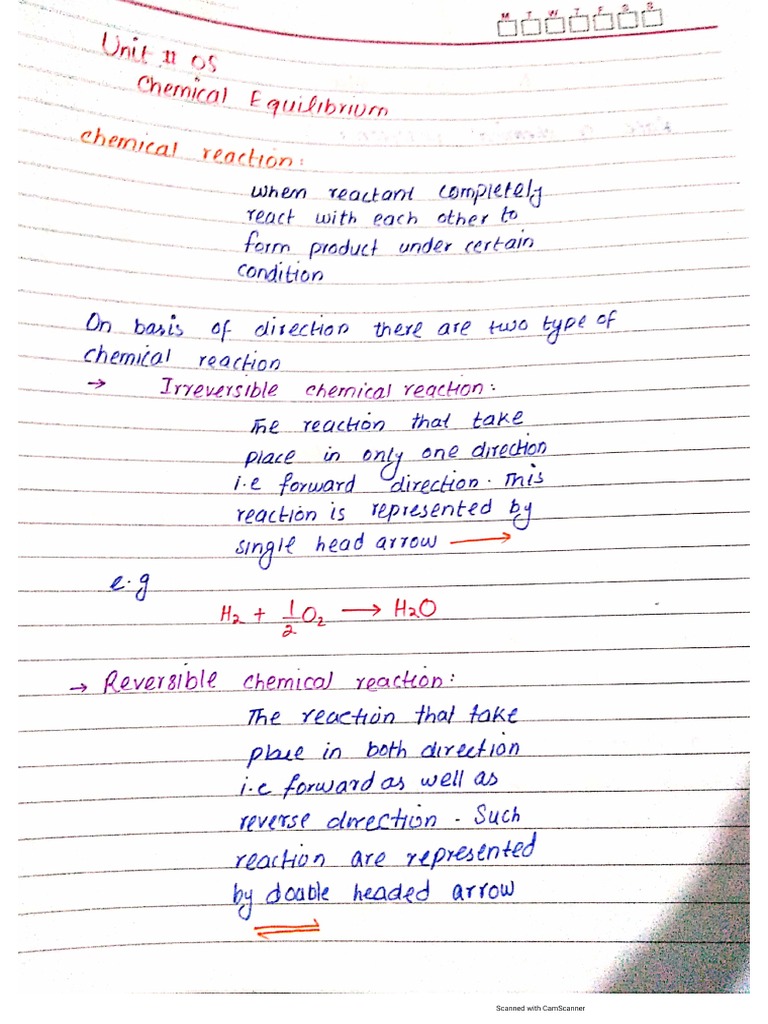 M T W T F S S
Unit # 05
Chemical Equilibrium
chemical reaction:
when reactant completely
react with each other to
form product under certain
condition
On basis of direction there are two type of
chemical reaction
→ Irreversible chemical reaction:
The reaction that take
place in only one direction
i.e forward direction. This
reaction is represented by
single head arrow →
e.g
H2 + 1/2 O2 → H2O
→ Reversible chemical reaction:
The reaction that take
place in both direction
i.e forward as well as
reverse direction. Such
reaction are represented
by double headed arrow
⇌
Scanned with CamScanner